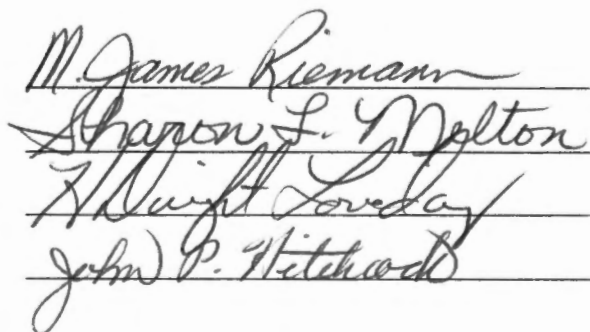 M. James Riemann
Sharon L. Melton
H Dwight Loveday
John P. Hitchcock